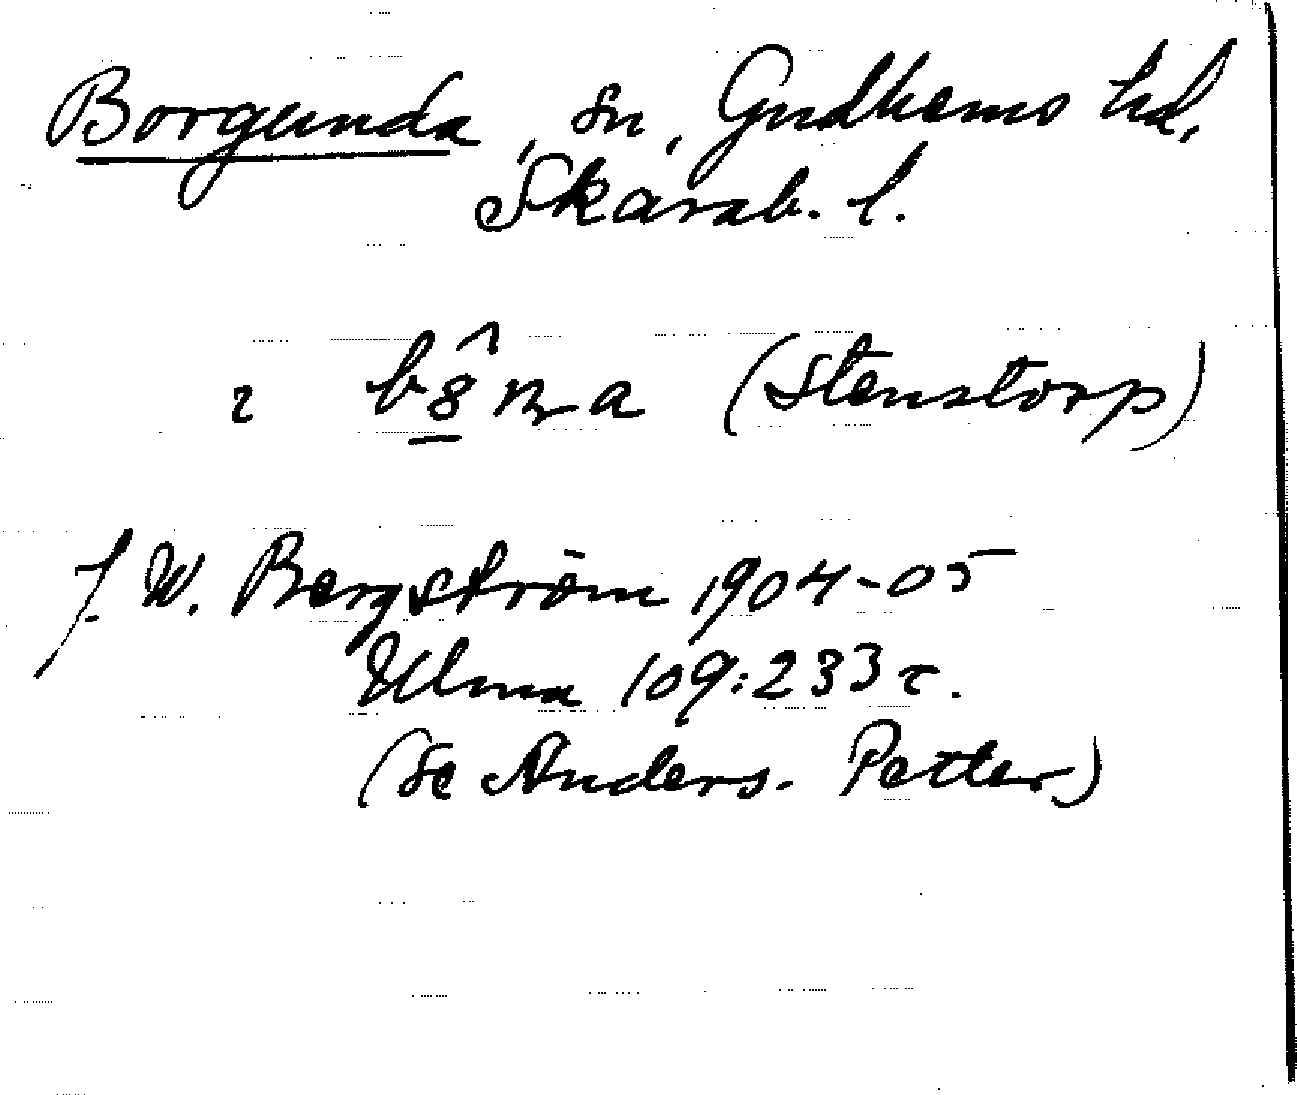 Borgunda, sn, Gudhems hd,
Skarab. l.
(Stenstorp)
J. W. Bergström 1904-05
Ulma 109:233 c.
(Se Anders. Petter)